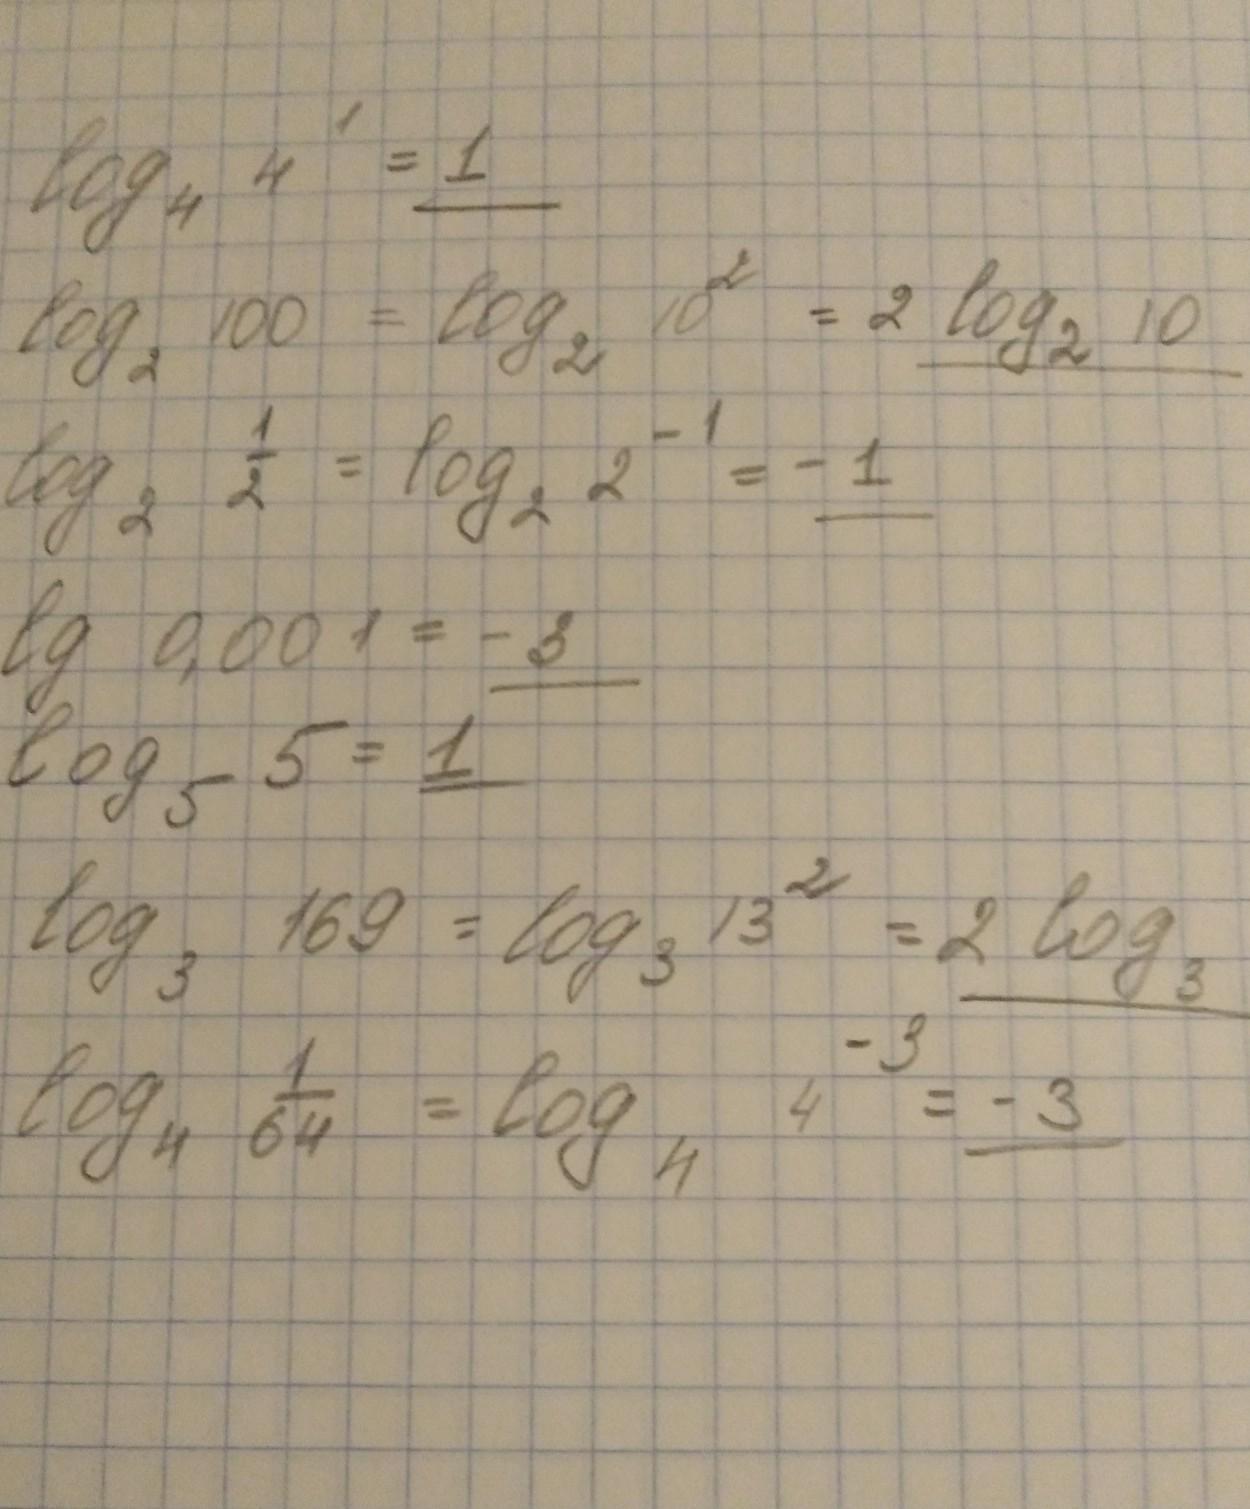 log₄ 4¹ = 1
log₂ 100 = log₂ 10² = 2 log₂ 10
log₂ 1/2 = log₂ 2⁻¹ = -1
lg 0,001 = -3
log₅ 5 = 1
log₃ 169 = log₃ 13² = 2 log₃
log₄ 1/64 = log₄ 4⁻³ = -3